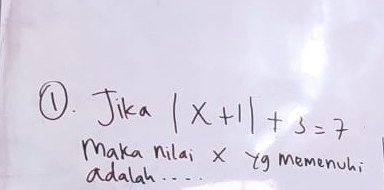 ①. Jika |x+1| + 3 = 7
Maka nilai x yg memenuhi
adalah....